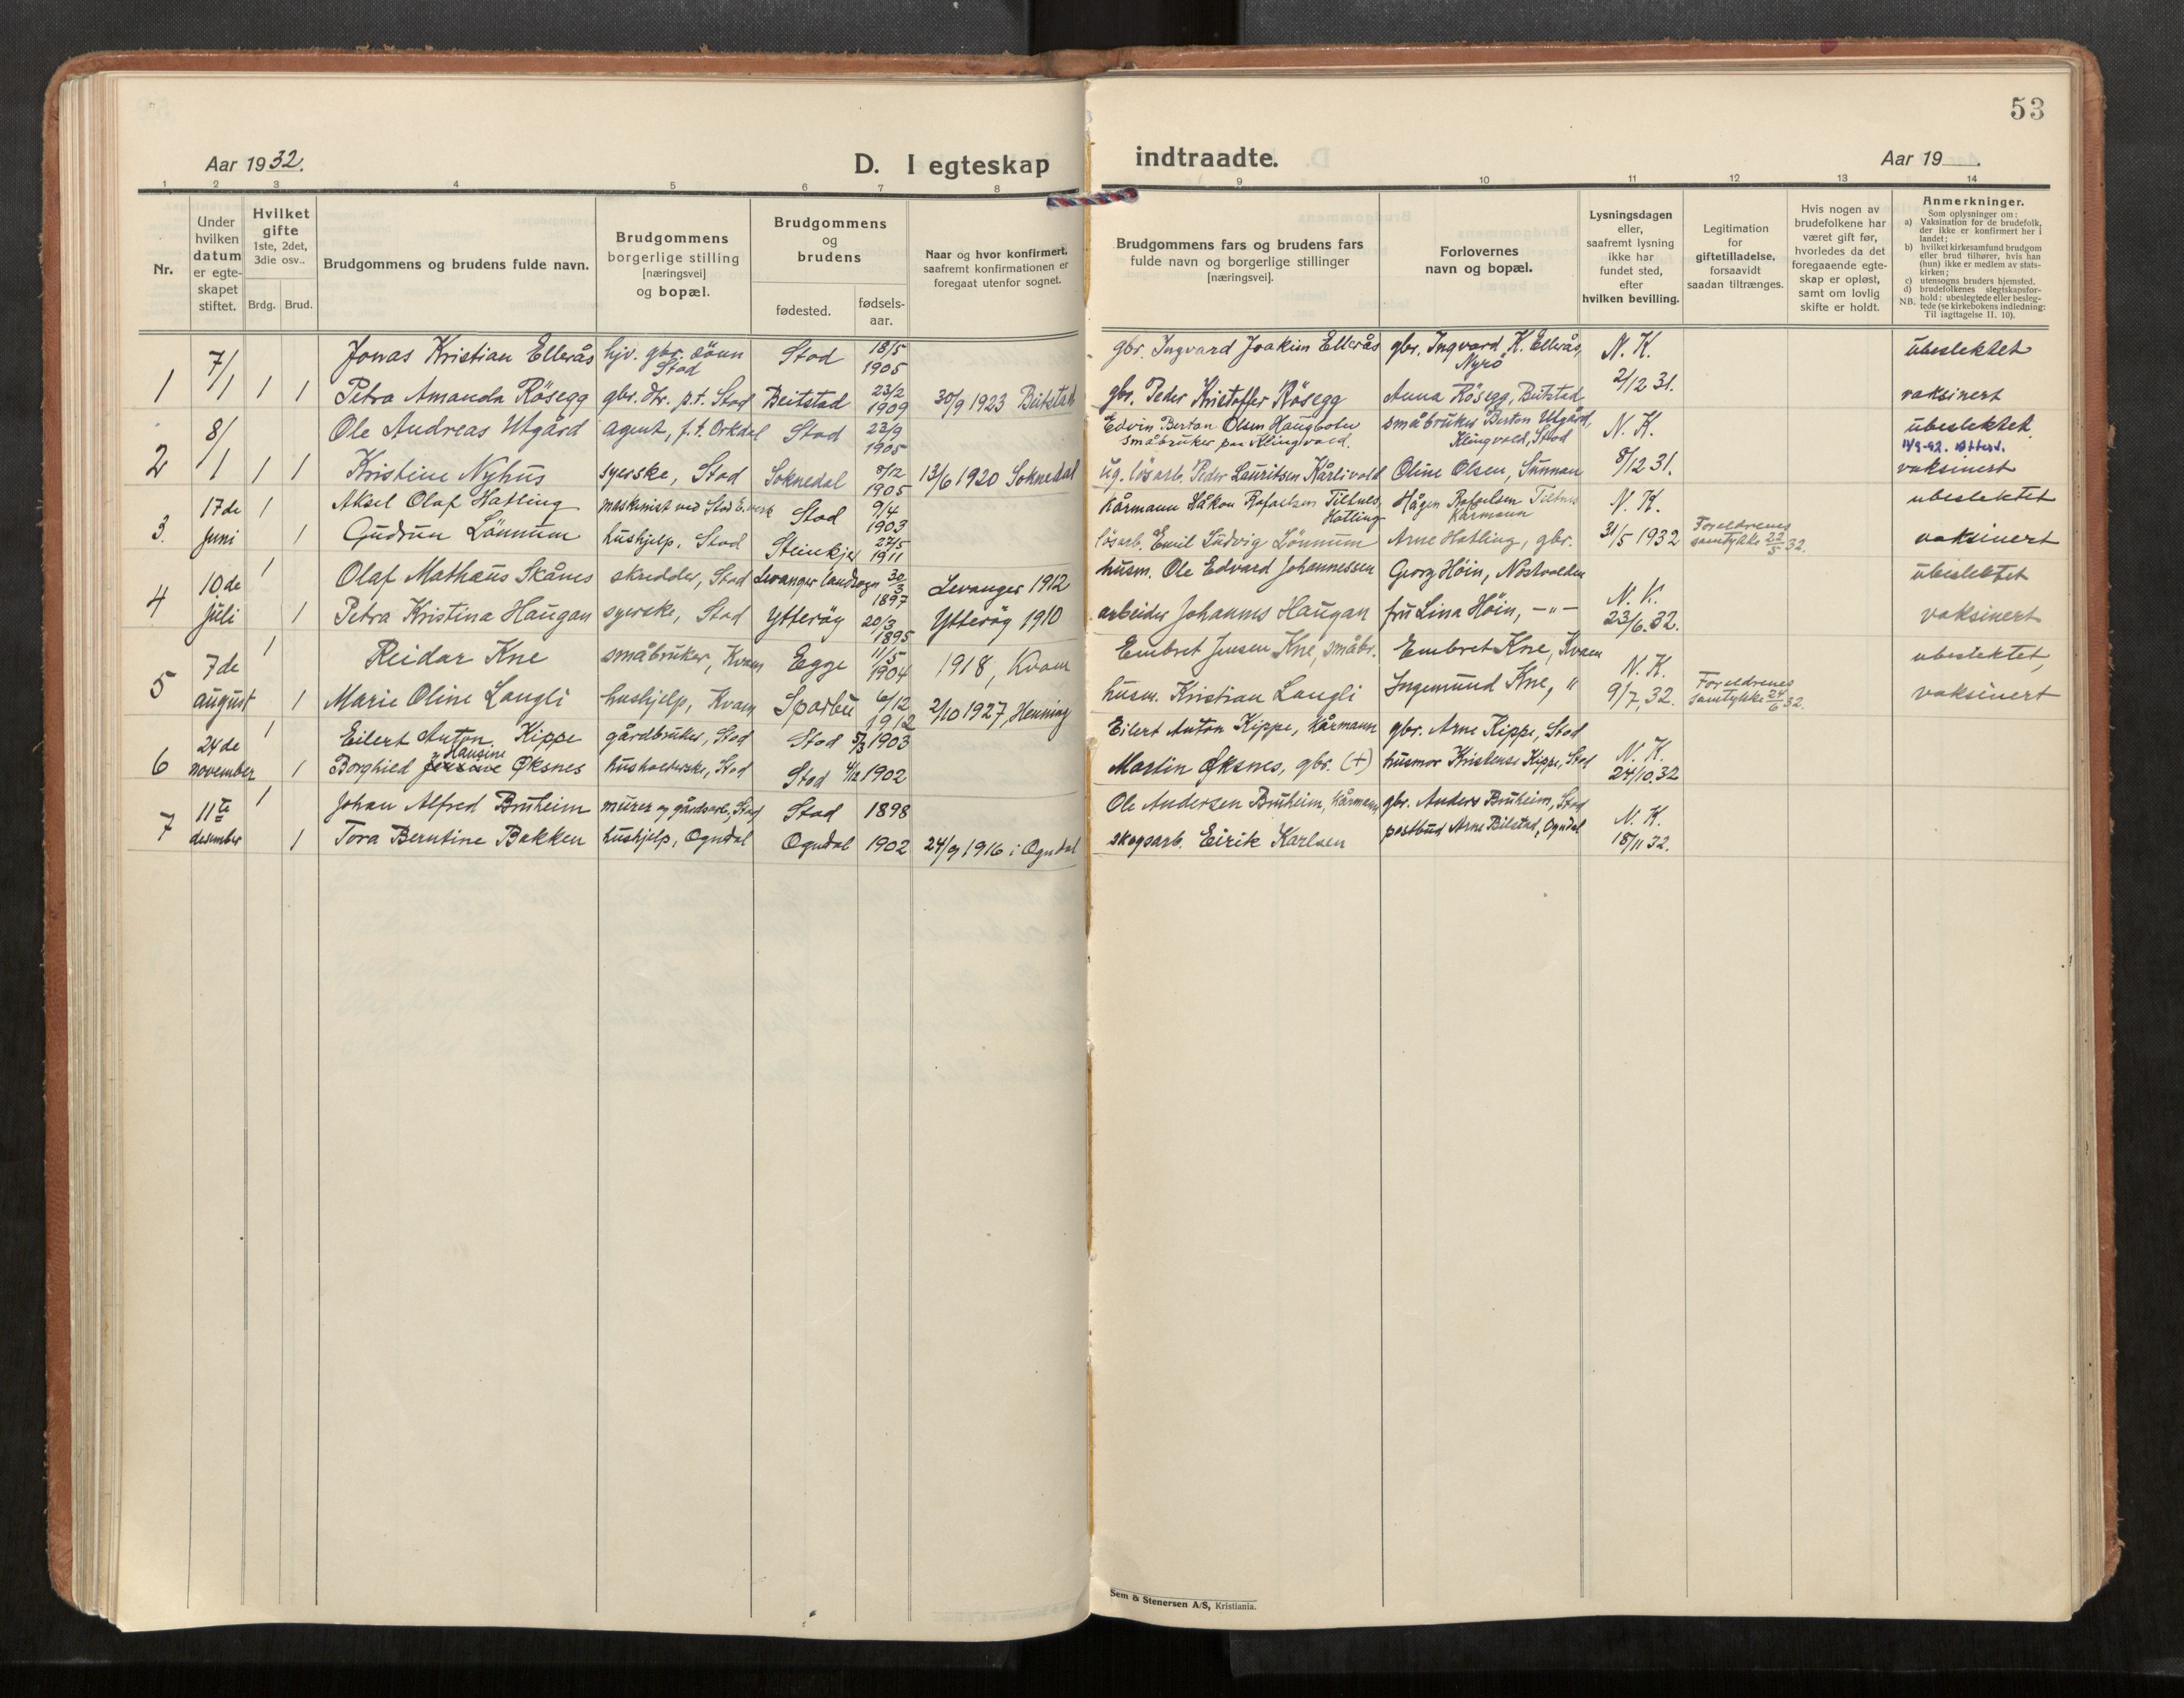 53
Aar 1932.
D. I egteskap
indtraadte.
Aar 19
1 2 3 4 5 6 7 8
9 10 11 12 13 14
Nr.
Under
hvilken
datum
er egte-
skapet
stiftet.
Hvilket
gifte
1ste, 2det,
3die osv..
Brdg. Brud.
Brudgommens og brudens fulde navn.
Brudgommens
borgerlige stilling
[næringsvei]
og bopæl.
Brudgommens
og
brudens
fødested.
fødsels-
aar.
Naar og hvor konfirmert,
saafremt konfirmationen er
foregaat utenfor sognet.
Brudgommens fars og brudens fars
fulde navn og borgerlige stillinger
[næringsvei].
Forlovernes
navn og bopæl.
Lysningsdagen
eller,
saafremt lysning
ikke har
fundet sted,
efter
hvilken bevilling.
Legitimation
for
giftetilladelse,
forsaavidt
saadan tiltrænges.
Hvis nogen av
brudefolkene har
været gift før,
hvorledes da det
foregaaende egte-
skap er opløst,
samt om lovlig
skifte er holdt.
Anmerkninger.
Som oplysninger om:
a) Vaksination for de brudefolk,
der ikke er konfirmert her i
landet;
b) hvilket kirkesamfund brudgom
eller brud tilhører, hvis han
(hun) ikke er medlem av stats-
kirken;
c) utensogns bruders hjemsted.
d) brudefolkenes slegtskapsfor-
NB. hold: ubeslegtede eller besleg-
tede (se kirkebokens indledning:
Til iagttagelse II. 10).
7/ Jonas Kristian Ellerås hjv. gbr. sönn Stod 18/5 gbr. Ingvard Joakim Ellerås gbr. Ingvard K. Ellerås, N. K. ubeslektet
Stod 1905 Nyrö
1 1 1 1 Petra Amanda Rösegg gbr. dtr. p.t. Stod Beitstad 23/2 1909 30/9 1923 Beitstad gbr. Peder Kristoffer Rösegg Anna Rösegg, Beitstad 2/12 31. vaksinert
8/ Ole Andreas Utgård agent, p.t. Orkdal Stod 23/9 1905 Edvin Bertan Olsen Haugboter småbruker Berton Utgård, N. K. ubeslektet
småbruker paa Klingvold. Klingvold, Stod
2 1 1 1 Kristine Nyhus syerske, Stod Soknedal 8/12 1905 13/6 1920 Soknedal ug. lösarb. Peder Lauritsen Kårlivold Oline Olsen, Sunnan 8/12 31. vaksinert
17de 1 Aksel Olaf Hatling maskinist ved Stod E.verk Stod 9/4 1903 kårmann Håkon Rafaelsen Tiltnes, Hågen Rafaelsen Tiltnes N. K. ubeslektet
Hatling Kårmann
3. juni 1 Gudrun Lönnum hushjelp, Stod Steinkjer 27/5 1911 lösarb. Emil Ludvig Lönnum Arne Hatling, gbr. 31/5 1932 Foreldrenes samtykke 22/5 32. vaksinert
10de 1 Olaf Mathæus Skånes skredder, Stod Levanger landsogn 30/3 1897 Levanger 1912 husm. Ole Edvard Johannessen Georg Höin, Nostvolden ubeslektet
4 juli 1 Petra Kristina Haugan syerske, Stod Ytteröy 20/3 1895 Ytteröy 1910 arbeider Johannes Haugan fru Lina Höin, -"- N. K. 23/6.32. vaksinert
7de 1 Reidar Kne småbruker, Kvam Egge 11/5 1904 1918, Kvam Embret Jensen Kne, småbr. Embret Kne, Kvam N. K. ubeslektet,
5 august 1 Marie Oline Langli hushjelp, Kvam Sparbu 6/12 1912 2/10 1927, Henning husm. Kristian Langli Ingemund Kne, " 9/7,32. Foreldrenes samtykke 24/6 32. vaksinert
24de 1 Eilert Anton Kippe gårdbruker, Stod Stod 5/3 1903 Eilert Anton Kippe, kårmann gbr. Arne Kippe, Stod
Hansine
6 november 1 Borghied Øksnes husholderske, Stod Stod 4/12 1902 Martin Øksnes, gbr. (+) husmor Kristense Kippe, Stod N. K. 24/10.32
11te 1 Johan Alfred Bruheim murer og gårdsarb., Stod Stod 1898 Ole Andersen Bruheim, kårmann gbr. Anders Bruheim, Stod
7 desember 1 Tora Berntine Bakken hushjelp, Ogndal Ogndal 1902 24/9 1916 i Ogndal skogsarb. Eirik Karlsen postbud Arne Bilstad, Ogndal N. K. 18/11 32.
Sem & Stenersen A/S, Kristiania.